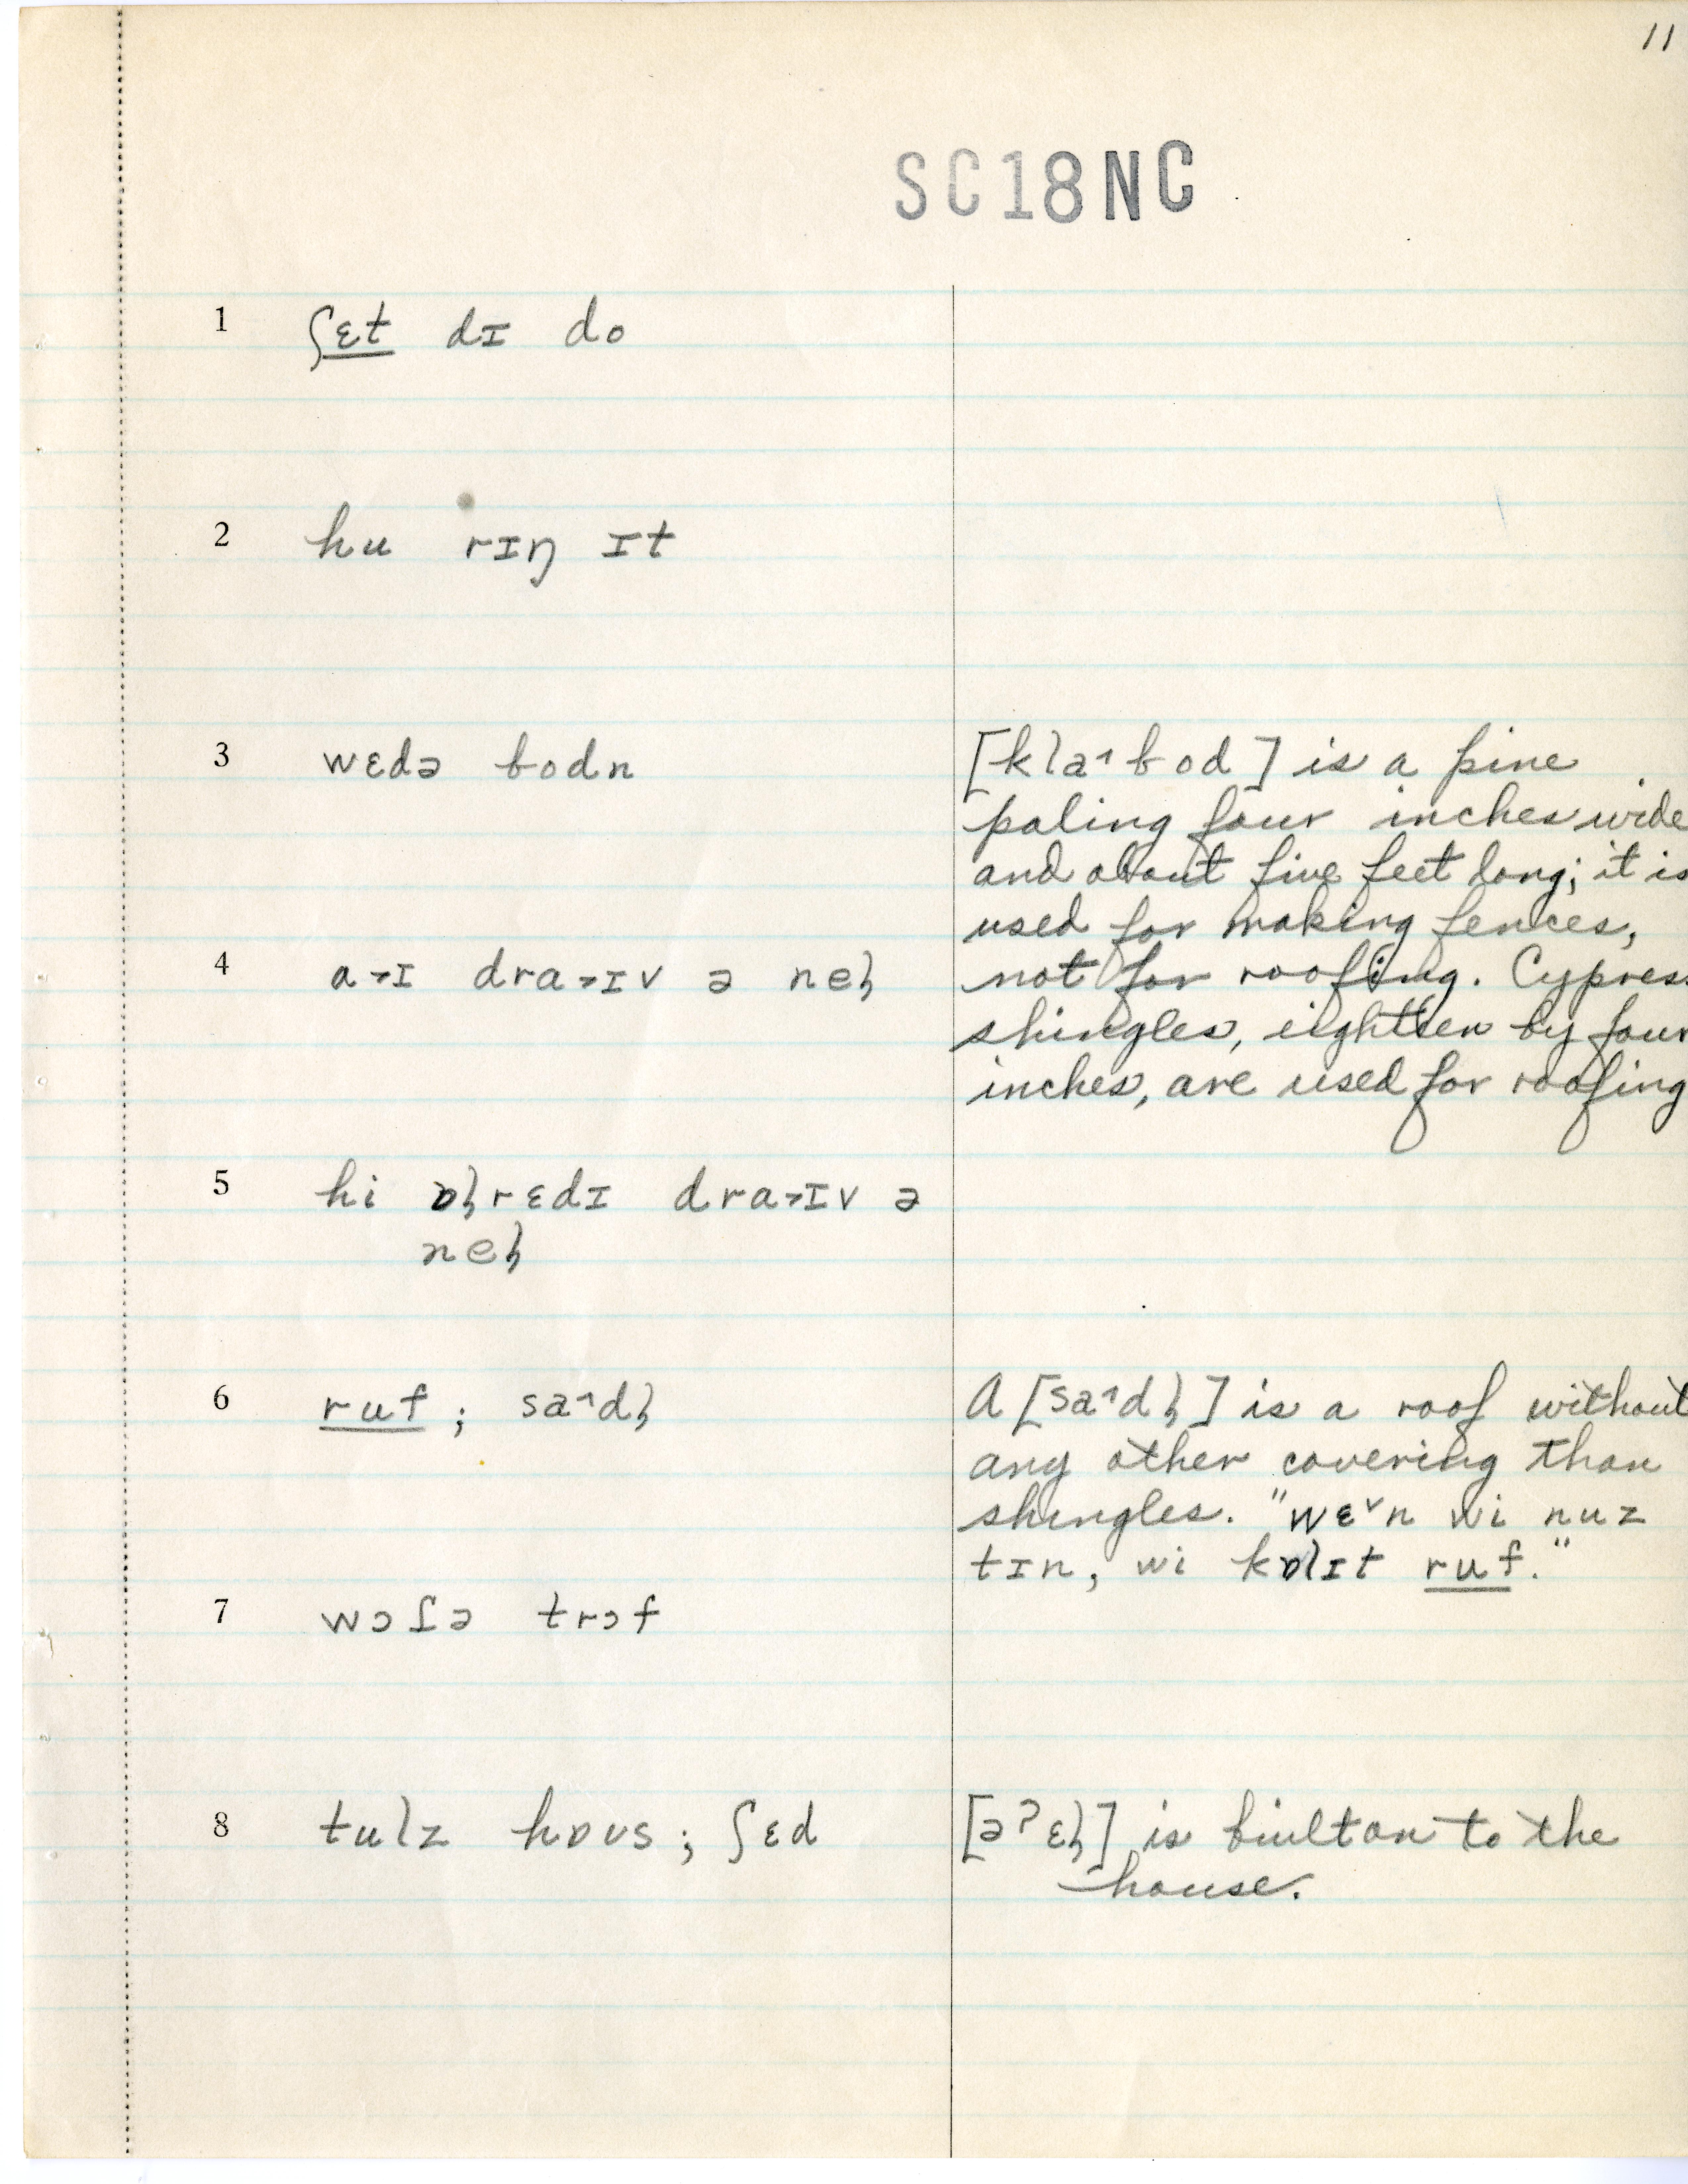 11
SC18NC
1 ʃɛt dɪ do
2 hu rɪŋ ɪt
3 wɛdə bodn
[kla˄bod] is a pine
paling four inches wide
and about five feet long; it is
used for making fences,
4 a˃ɪ dra˃ɪv ə neɫ
not for roofing. Cypress
shingles, eighteen by four
inches, are used for roofing
5 hi ɒɫrɛdɪ dra˃ɪv ə
neɫ
6 ruf; sa˄dɫ
A [sa˄dɫ] is a roof without
any other covering than
shingles. "wɛ˅n wi nuz
tɪn, wi kɒlɪt ruf."
7 wɔʃə trɔf
8 tulz hɒʊs; ʃɛd
[əˀɛɫ] is built on to the
house.